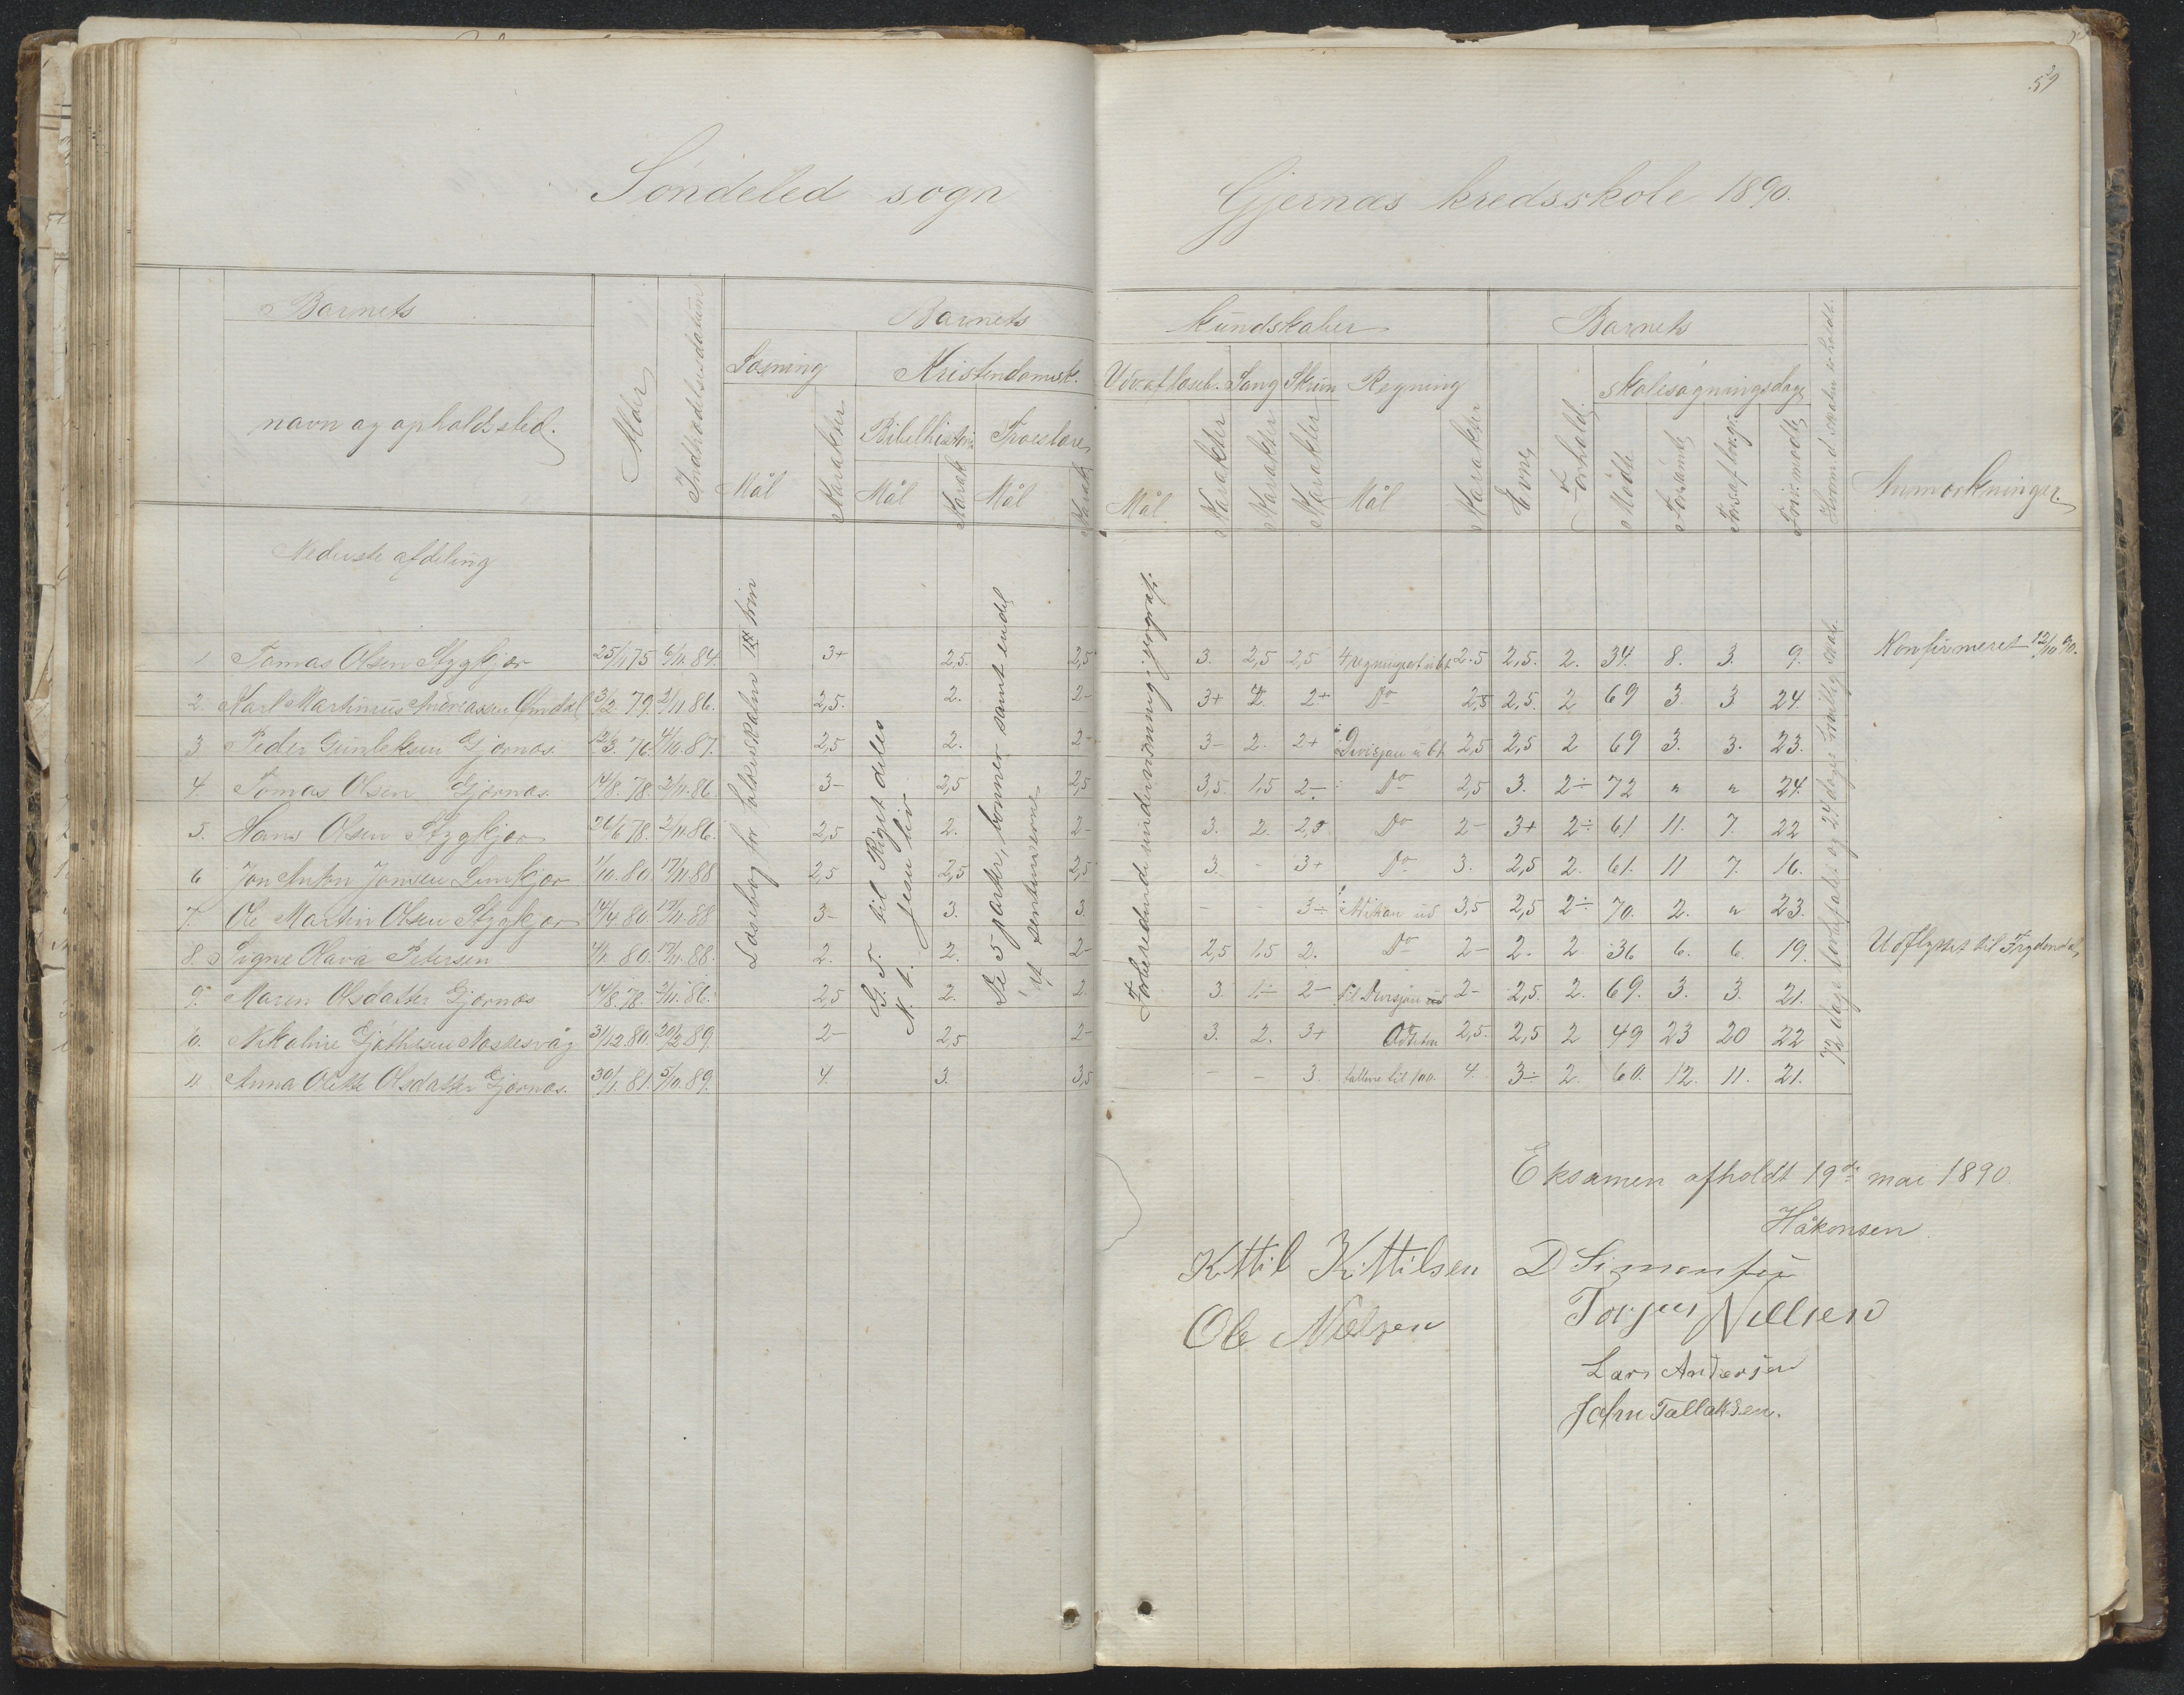 59
Søndeled sogn
Gjernæs kredsskole 1890.
Barnets
navn og opholdssted.
Alder
Indtrædelsesdatum
Barnets
Læsning
Kristendomsk.
Bibelhistorie
Troeslære
Mål
Karakter
Mål
Karak.
Mål
Karak.
Kundskaber
Udv. af læseb.
Sang
Skrivn
Regning
Mål
Karakter
Karakter
Karakter
Mål
Karakter
Barnets
Evne
Forhold
Skolesøgningsdage
Mødte
Forsømte
Anmærkninger.
Nederste afdeling
Læsebog for folkeskolen 1ste trin
G. T. til Riget deles
N. t. Jesu liv
De 5 parter, bønner samt endel
af sentenserne
Forberedende undervisning i geografi.
1 Tomas Olsen Stygkjær 25/1 75 6/11 84. 3+ 2,5. 2,5 3. 2,5 2,5 2.5 2,5. 2. 34. 8. 3. 9. Konfirmeret 12/10 90.
2. Karl Martinius Andreassen Omdal 3/2 79. 2/11 86. 2,5. 2. 2- 3+ 2. 2+ Do 2,5 2,5. 2 69 3 3 24.
3 Peder Gunleksen Gjernæs. 12/3. 76. 4/10. 87. 2,5 2. 2- 3- 2. 2+ Divisjon 2,5 2,5 2 69 3. 3. 23.
4 Tomas Olsen Gjernæs. 14/8. 78. 2/11. 86. 3- 2,5 2,5 3,5. 1,5 2- Do 2,5 3. 2÷ 72 " " 24.
5. Hans Olsen Stygkjær 26/6 78. 2/11. 86. 2,5 2. 2- 3. 2. 2,5 Do 2- 3+ 2÷ 61 11. 7. 22
6 Jon Anton Jonsen Lunkjær 1/10. 80. 17/11. 88 2,5 2,5 2,5 3. - 3+ Do 3. 2,5 2. 61. 11 7. 16.
7. Ole Martin Olsen Stygkjær 14/4 80. 17/11. 88 3- 3. 3. - - 3÷ 3,5 2,5 2÷ 70. 2. " 23.
8. Signe Olava Petersen 4/1. 80. 17/11. 88. 2. 2. 2- 2,5 1,5 2. Do 2- 2. 2. 36 6. 6. 19. Udflyttet til Frydendal,
9. Maren Olsdatter Gjernæs 14/8. 78. 2/11. 86. 2,5 2. 2. 3. 1,÷ 2- til Divisjon 2- 2,5. 2. 69. 3. 3. 21.
10. Nikoline Gjøthesen Næskesvåg 31/12. 80. 20/2 89. 2- 2,5 2- 3. 2. 3+ 2,5. 2,5 2 49 23 20 22
11. Anna Olette Olsdatter Gjernæs. 30/1. 81. 5/10. 89. 4. 3. 3,5 - - 3. tallene til 100. 4. 3÷ 2. 60. 12. 11. 21.
Eksamen afholdt 19de mai 1890.
Håkonsen
Kittil Kittilsen D Simonsen
Ole Nielsen Torjus Nillsen
Lars Andersen
John Tallaksen.